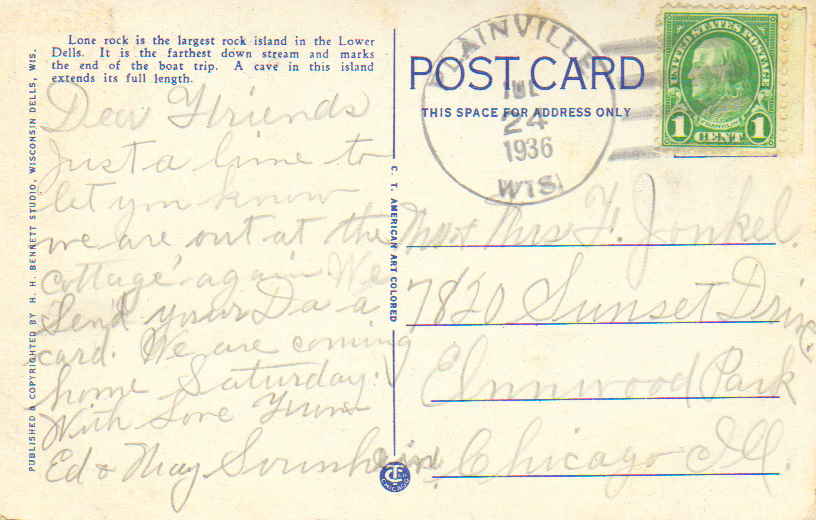 Lone rock is the largest rock island in the Lower
Dells. It is the farthest down stream and marks
the end of the boat trip. A cave in this island
extends its full length.
Dear Friends
Just a line to
let you know
we are out at the
cottage again We
Send your Da a
card. We are coming
home Saturday.
With Love
Ed & May
PUBLISHED & COPYRIGHTED BY H. H. BENNETT STUDIO, WISCONSIN DELLS, WIS.
C. T. AMERICAN ART COLORED
POST CARD
THIS SPACE FOR ADDRESS ONLY
PLAINVILLE
JUL
24
1936
WIS.
UNITED STATES POSTAGE
FRANKLIN
1 CENT 1
Mr & Mrs F. Jonkel.
7820 Sunset Drive
Elmwood Park
Chicago Ill.
CHICAGO